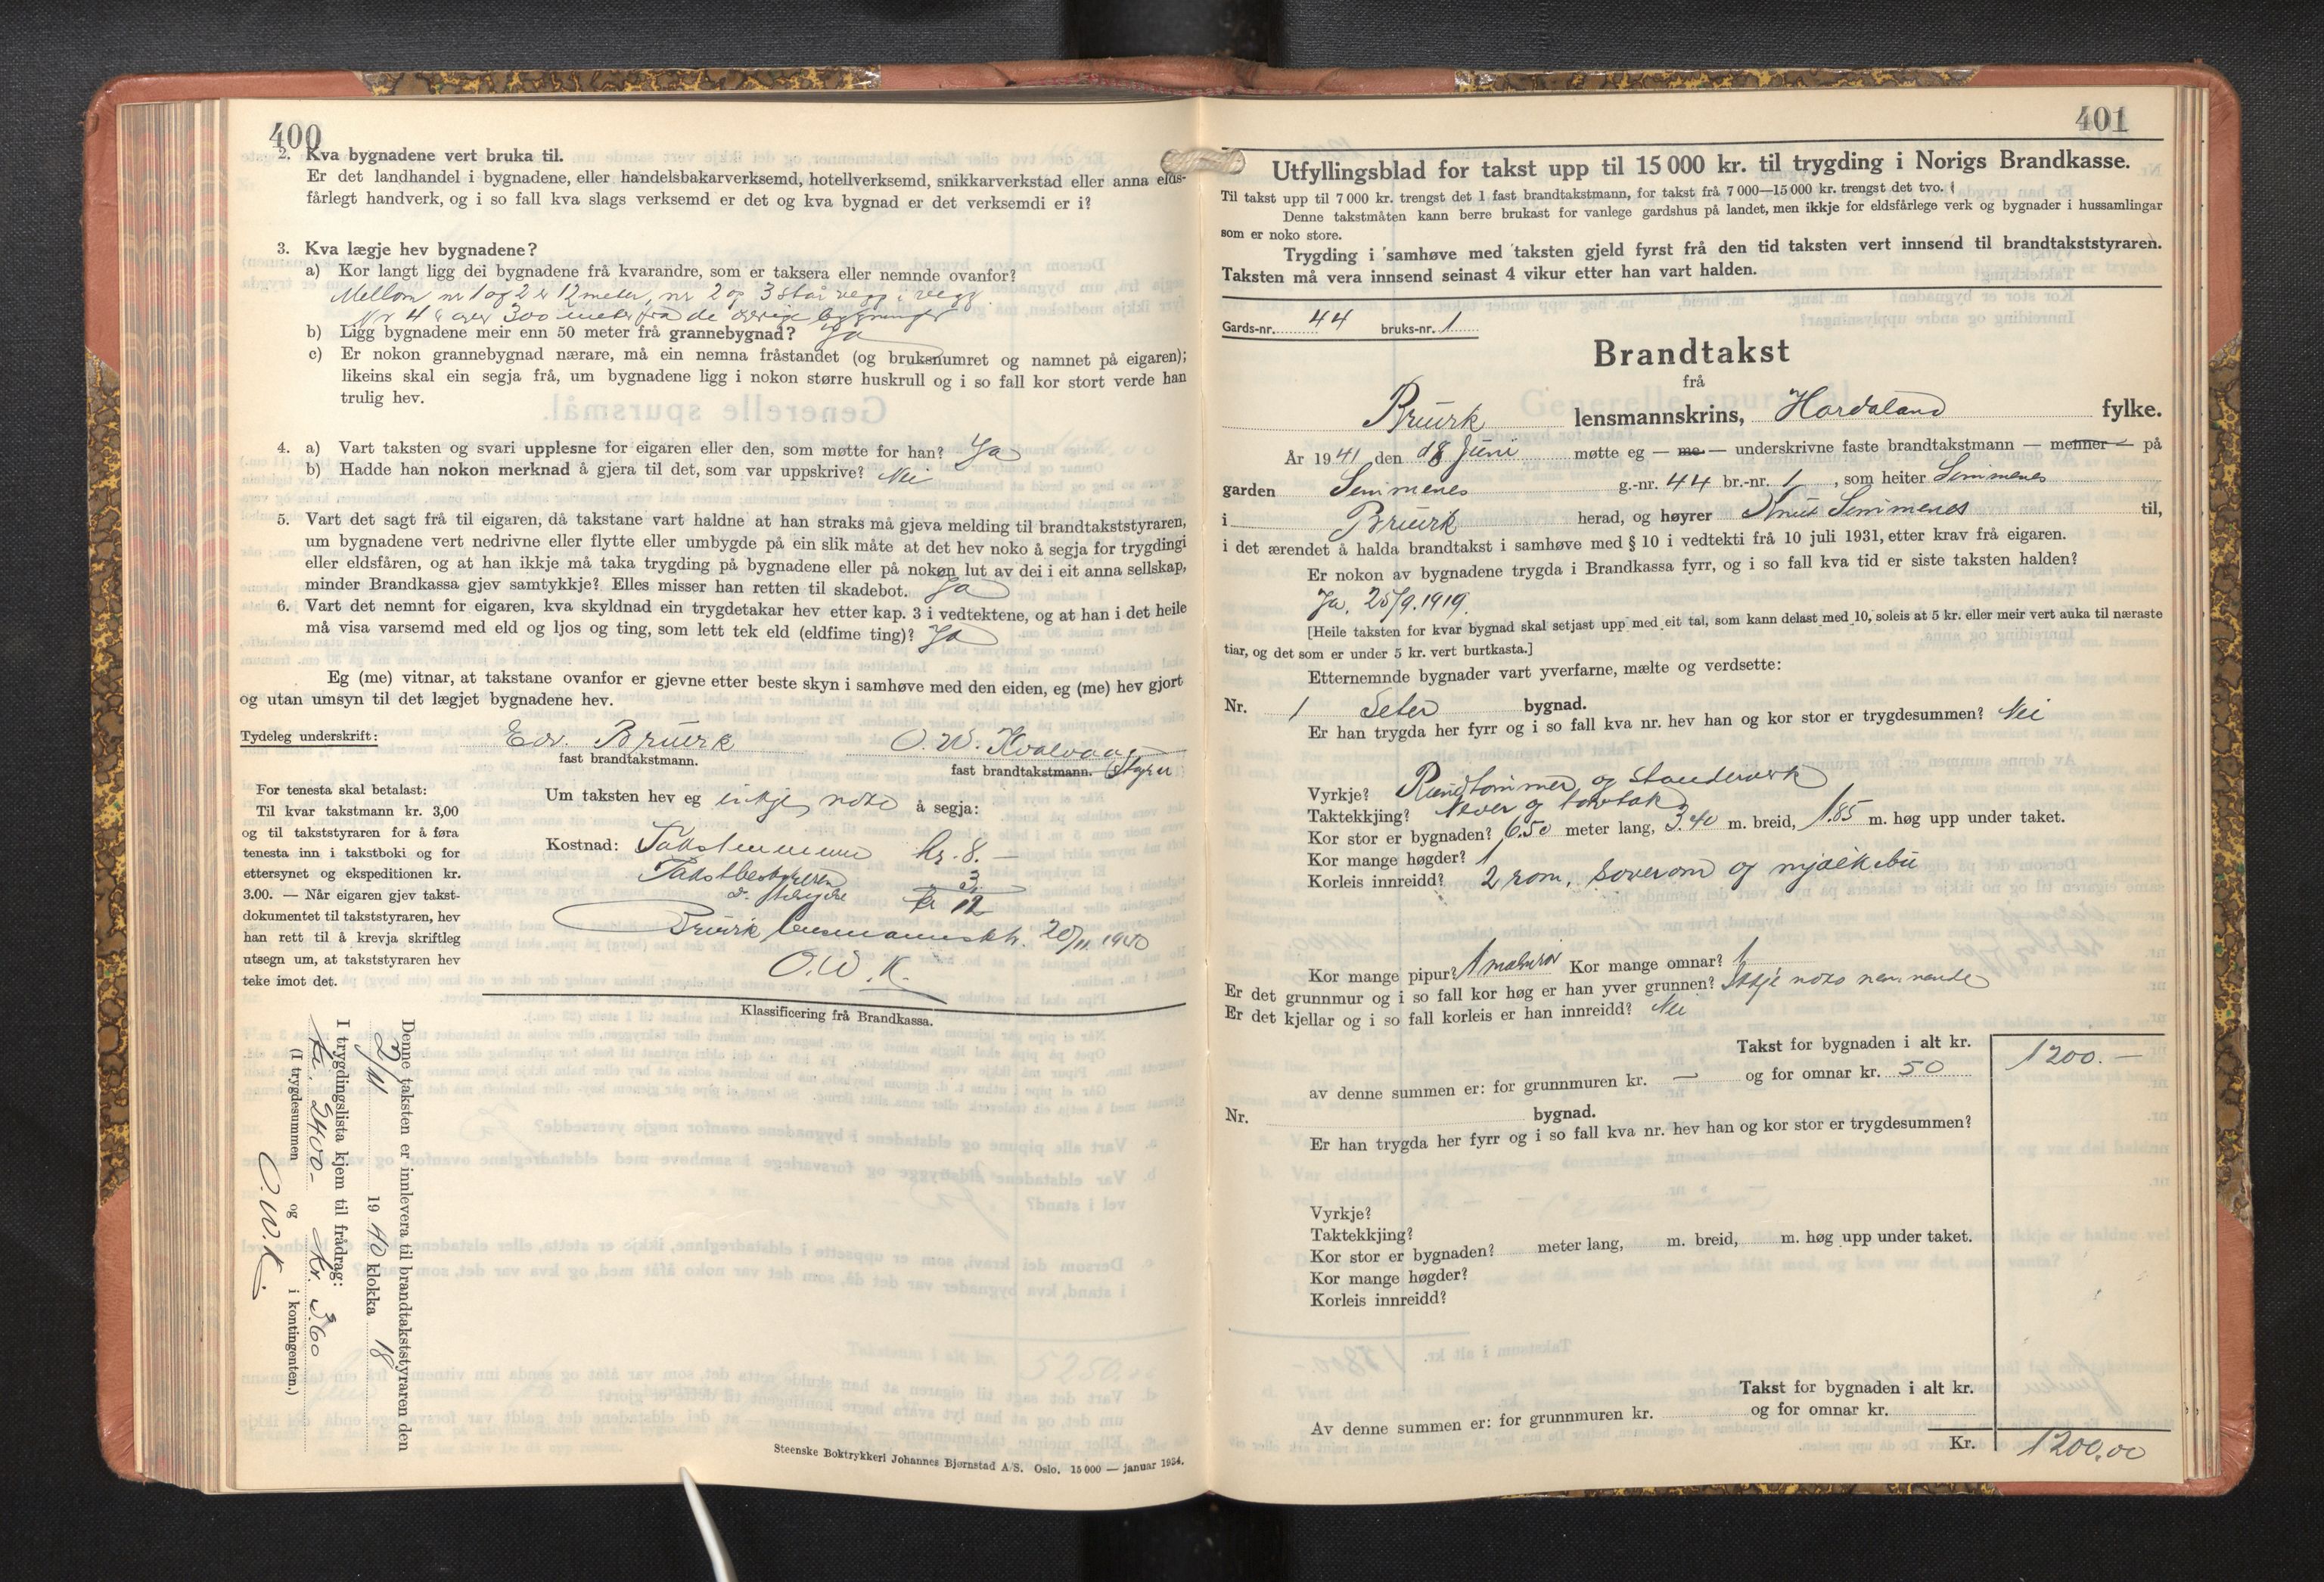 400
2. Kva bygnadene vert bruka til.
Er det landhandel i bygnadene, eller handelsbakarverksemd, hotellverksemd, snikkarverkstad eller anna elds-
fårlegt handverk, og i so fall kva slags verksemd er det og kva bygnad er det verksemdi er i?
3. Kva lægje hev bygnadene?
a) Kor langt ligg dei bygnadene frå kvarandre, som er taksera eller nemnde ovanfor?
Mellom nr 1 og 2 er 12 meter, nr 2 og 3 står vegg i vegg
Nr 4 er over 300 meter fra de øvrige bygninger
b) Ligg bygnadene meir enn 50 meter frå grannebygnad? Ja
c) Er nokon grannebygnad nærare, må ein nemna fråstandet (og bruksnumret og namnet på eigaren);
likeins skal ein segja frå, um bygnadene ligg i nokon større huskrull og i so fall kor stort verde han
trulig hev.
4. a) Vart taksten og svari upplesne for eigaren eller den, som møtte for han? Ja
b) Hadde han nokon merknad å gjera til det, som var uppskrive? Nei
5. Vart det sagt frå til eigaren, då takstane vart haldne at han straks må gjeva melding til brandtakststyraren,
um bygnadene vert nedrivne eller flytte eller umbygde på ein slik måte at det hev noko å segja for trygdingi
eller eldsfåren, og at han ikkje må taka trygding på bygnadene eller på nokon lut av dei i eit anna sellskap,
minder Brandkassa gjev samtykkje? Elles misser han retten til skadebot. Ja
6. Vart det nemnt for eigaren, kva skyldnad ein trygdetakar hev etter kap. 3 i vedtektene, og at han i det heile
må visa varsemd med eld og ljos og ting, som lett tek eld (eldfime ting)? Ja
Eg (me) vitnar, at takstane ovanfor er gjevne etter beste skyn i samhøve med den eiden, eg (me) hev gjort
og utan umsyn til det lægjet bygnadene hev.
Tydeleg underskrift: Edv. Bruvik O. W. Kvalvaag
fast brandtakstmann. fast brandtakstmann. Styrer
For tenesta skal betalast:
Til kvar takstmann kr. 3,00
og til takststyraren for å føra
tenesta inn i takstboki og for
ettersynet og ekspeditionen kr.
3.00. — Når eigaren gjev takst-
dokumentet til takststyraren, hev
han rett til å krevja skriftleg
utsegn um, at takststyraren hev
teke imot det.
Um taksten hev eg inkje noko å segja:
Kostnad: Takstmennene kr. 8. —
Takstbestyreren 3
kr 12
Bruvik lensmannsktr. 20/11 1940
O. W. K.
Klassificering frå Brandkassa.
Denne taksten er innlevera til brandtakststyraren den
2/11 1940 klokka 18
I trygdingslista kjem til frådrag:
kr. 2400- kr. 3.60
(I trygdesummen og i kontingenten.)
O. W. K.
Steenske Boktrykkeri Johannes Bjørnstad A/S. Oslo. 15 000 — januar 1934.
401
Utfyllingsblad for takst upp til 15 000 kr. til trygding i Norigs Brandkasse.
Til takst upp til 7 000 kr. trengst det 1 fast brandtakstmann, for takst frå 7 000—15 000 kr. trengst det tvo.
Denne takstmåten kann berre brukast for vanlege gardshus på landet, men ikkje for eldsfårlege verk og bygnader i hussamlingar
som er noko store.
Trygding i samhøve med taksten gjeld fyrst frå den tid taksten vert innsend til brandtakststyraren.
Taksten må vera innsend seinast 4 vikur etter han vart halden.
Gards-nr. 44 bruks-nr. 1
Brandtakst
frå
Bruvik lensmannskrins, Hordaland fylke.
År 1941 den 18 Juni møtte eg — me — underskrivne faste brandtakstmann — menner — på
garden Semmenes g.-nr. 44 br.-nr. 1, som heiter Semmenes
i Bruvik herad, og høyrer Knut Semmenes til,
i det ærendet å halda brandtakst i samhøve med § 10 i vedtekti frå 10 juli 1931, etter krav frå eigaren.
Er nokon av bygnadene trygda i Brandkassa fyrr, og i so fall kva tid er siste taksten halden?
Ja, 25/9.1919.
[Heile taksten for kvar bygnad skal setjast upp med eit tal, som kann delast med 10, soleis at 5 kr. eller meir vert auka til næraste
tiar, og det som er under 5 kr. vert burtkasta.]
Etternemnde bygnader vart yverfarne, mælte og verdsette:
Nr. 1 Seter bygnad.
Er han trygda her fyrr og i so fall kva nr. hev han og kor stor er trygdesummen? Nei
Vyrkje? Rundtømmer og standerverk
Taktekkjing? Never og torvtak
Kor stor er bygnaden? 6.50 meter lang, 3.40 m. breid, 1.85 m. høg upp under taket.
Kor mange høgder? 1
Korleis innreidd? 2 rom, soverom og mjølkebu
Kor mange pipur? 1 malmrør Kor mange omnar? 1
Er det grunnmur og i so fall kor høg er han yver grunnen? Ikkje noko nemnande
Er det kjellar og i so fall korleis er han innreidd? Nei
Takst for bygnaden i alt kr. 1200. —
av denne summen er: for grunnmuren kr. — og for omnar kr. 50
Nr. bygnad.
Er han trygda her fyrr og i so fall kva nr. hev han og kor stor er trygdesummen?
Vyrkje?
Taktekkjing?
Kor stor er bygnaden? meter lang, m. breid, m. høg upp under taket.
Kor mange høgder?
Korleis innreidd?
Takst for bygnaden i alt kr.
Av denne summen er: for grunnmuren kr. og for omnar kr.
Kr. 1200,00